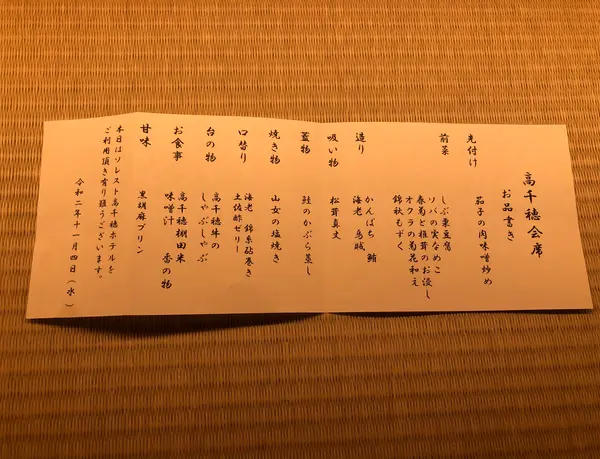 高千穂会席
お品書き
先付け
茄子の肉味噌炒め
前菜
しぶ栗豆腐
ソバの実なめこ
春菊と椎茸のお浸し
オクラの菊花和え
錦秋もずく
造り
かんぱち 鮪
海老 烏賊
吸い物
松茸真丈
蓋物
鮭のかぶら蒸し
焼き物
山女の塩焼き
口替り
海老 錦糸砧巻き
土佐酢ゼリー
台の物
高千穂牛の
しゃぶしゃぶ
お食事
高千穂棚田米
味噌汁 香の物
甘味
黒胡麻プリン
本日はソレスト高千穂ホテルを
ご利用頂き有り難うございます。
令和二年十一月四日(水)